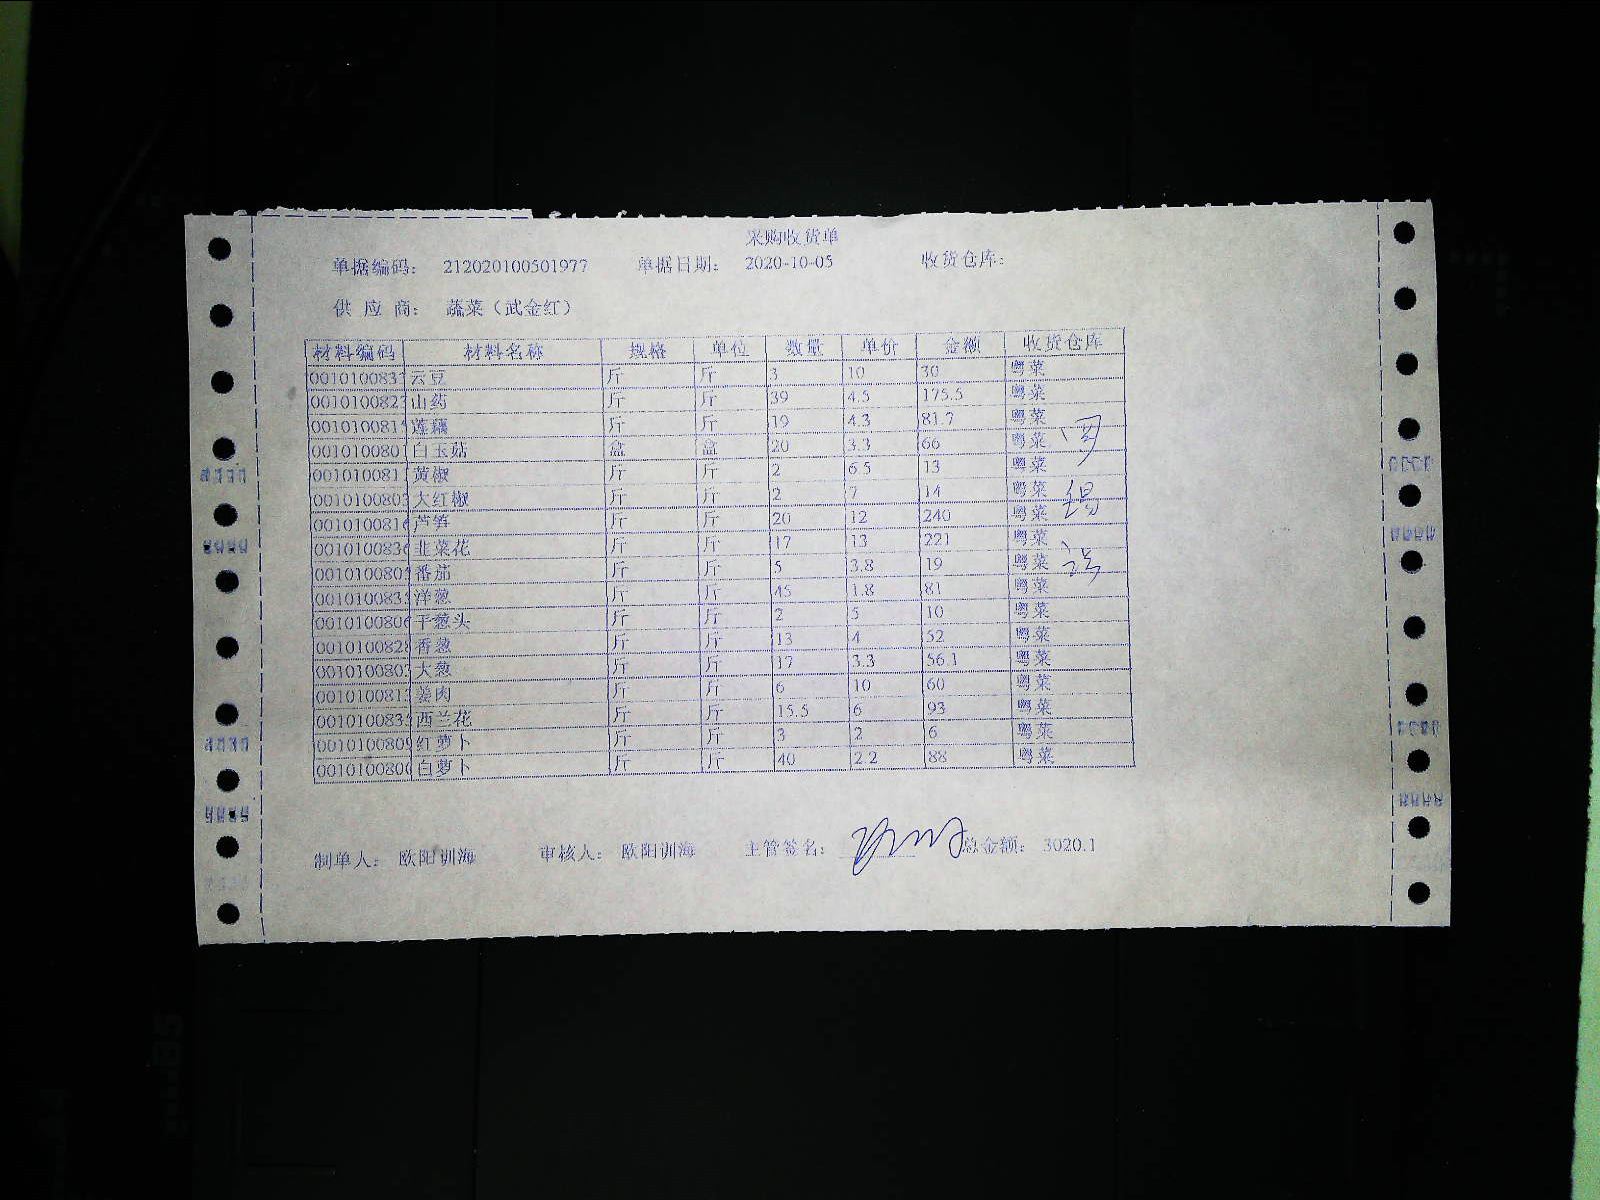 采购收货单
单据编码： 212020100501977 单据日期： 2020-10-05 收货仓库：
供 应 商： 蔬菜（武金红）
材料编码 材料名称 规格 单位 数量 单价 金额 收货仓库
0010100833 云豆 斤 斤 3 10 30 粤菜
001010082 山药 斤 斤 39 4.5 175.5 粤菜
001010081 莲藕 斤 斤 19 4.3 81.7 粤菜
001010080 白玉菇 盒 盒 20 3.3 66 粤菜
001010081 黄椒 斤 斤 2 6.5 13 粤菜
001010080 大红椒 斤 斤 2 7 14 粤菜
001010081 芦笋 斤 斤 20 12 240 粤菜
001010083 韭菜花 斤 斤 17 13 221 粤菜
001010080 番茄 斤 斤 5 3.8 19 粤菜
001010083 洋葱 斤 斤 45 1.8 81 粤菜
001010080 干葱头 斤 斤 2 5 10 粤菜
001010082 香葱 斤 斤 13 4 52 粤菜
001010080 大葱 斤 斤 17 3.3 56.1 粤菜
001010081 姜肉 斤 斤 6 10 60 粤菜
001010083 西兰花 斤 斤 15.5 6 93 粤菜
001010080 红萝卜 斤 斤 3 2 6 粤菜
001010080 白萝卜 斤 斤 40 2.2 88 粤菜
制单人： 欧阳训海 审核人： 欧阳训海 主管签名： 总金额： 3020.1